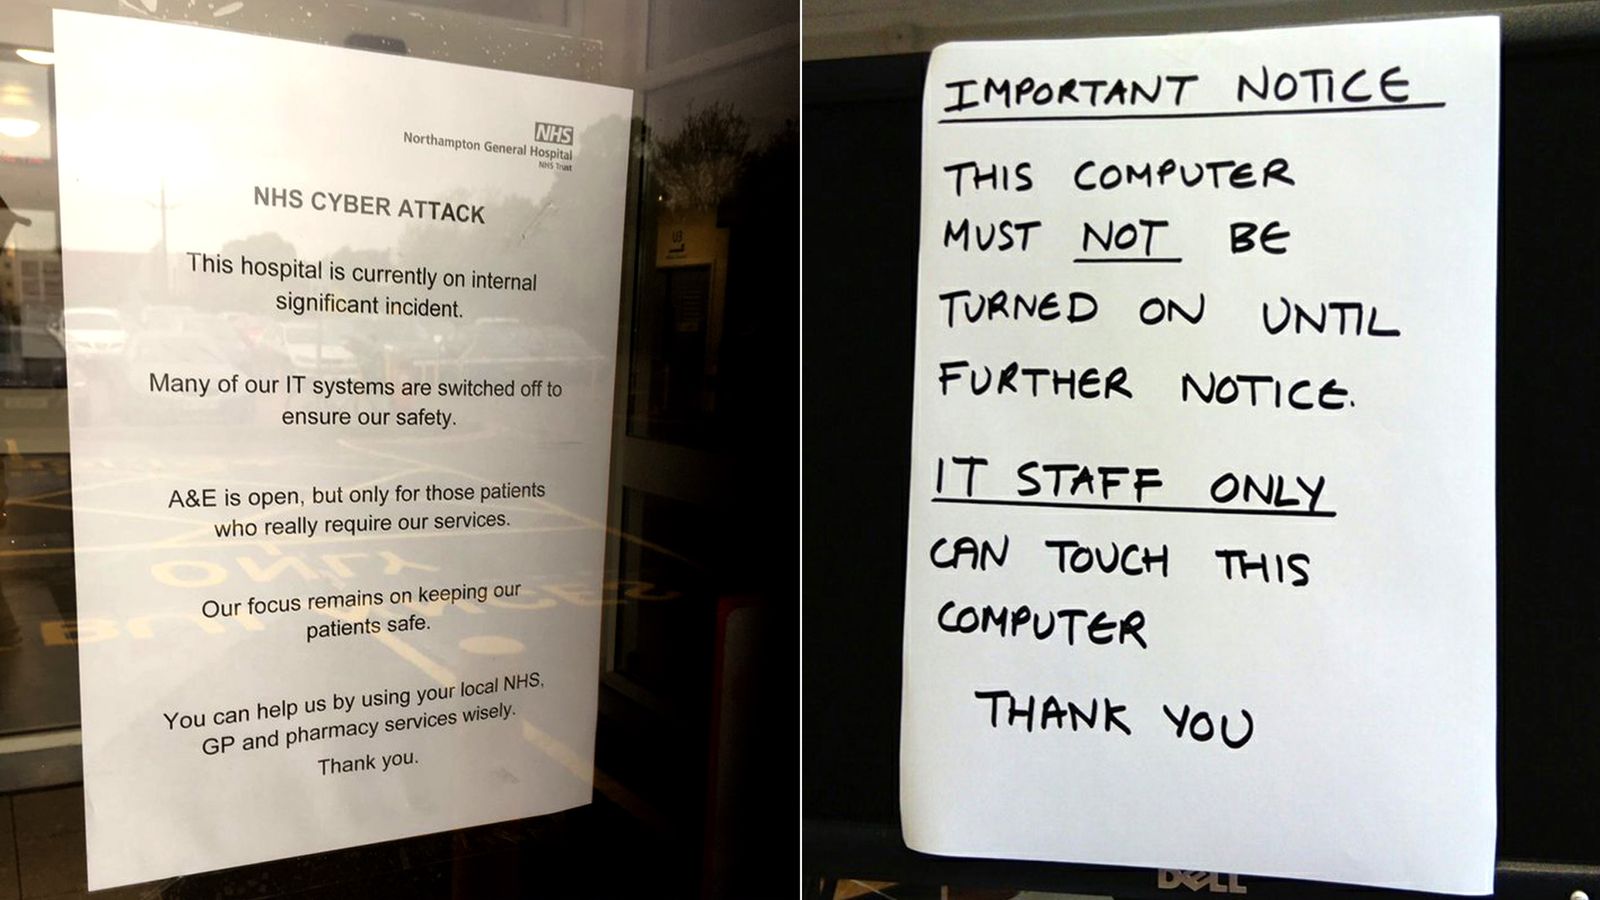 NHS
Northampton General Hospital
NHS Trust
NHS CYBER ATTACK
This hospital is currently on internal
significant incident.
Many of our IT systems are switched off to
ensure our safety.
A&E is open, but only for those patients
who really require our services.
Our focus remains on keeping our
patients safe.
You can help us by using your local NHS,
GP and pharmacy services wisely.
Thank you.
ONLY
IMPORTANT NOTICE
THIS COMPUTER
MUST NOT BE
TURNED ON UNTIL
FURTHER NOTICE.
IT STAFF ONLY
CAN TOUCH THIS
COMPUTER
THANK YOU
DELL